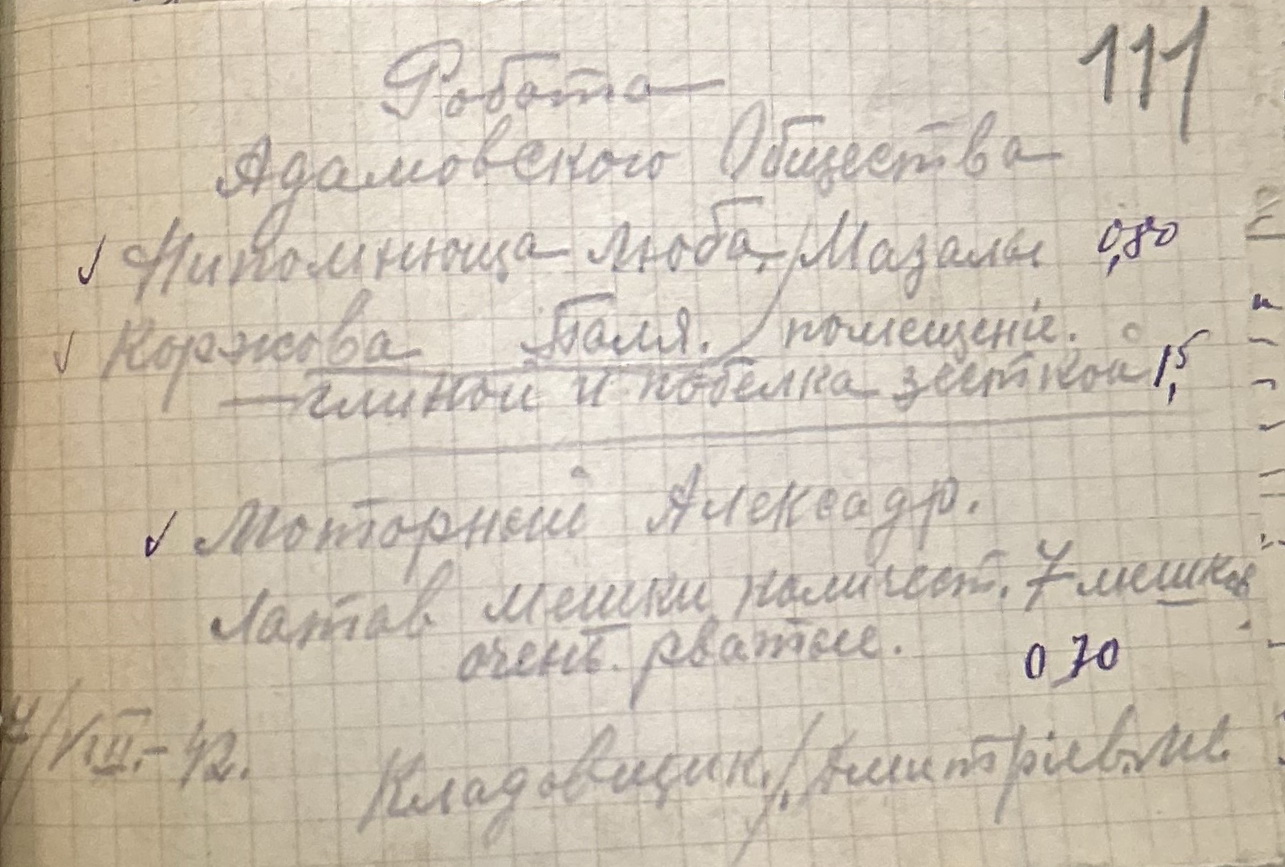 111
Робота
Адамовского Общества
Нипомнюща Люба. / Мазалы 0,80
Коржова Галя. / помещеніе.
глиной и побелка зесткой 1,5
Моторный Алексадр.
Латав мешки количест. 7 мешков
очень рватые. 0 70
/VIII.- 42. Кладовщик. /